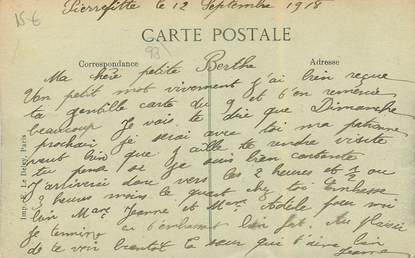 15 €
93
Pierrefitte le 12 Septembre 1918
CARTE POSTALE
Correspondance
Adresse
Ma chère petite Berthe
Un petit mot vivement j'ai bien reçue
ta gentille carte du 9 et t'en remercie
beaucoup Je vais te dire que Dimanche
prochain je serai avec toi ma patronne
veut bien que j'aille te rendre visite
tu pense si je suis bien contente
J'arriverai donc vers les 2 heures et ½ ou
3 heures moins le quart chez toi Embrasse
bien Mme Jeanne et Mme Adèle pour moi
Je termine en t'embrassant bien fort. Au plaisir
de te voir bientôt ta sœur qui t'aime bien
Jeanne
Imp. E. Le Deley, Paris